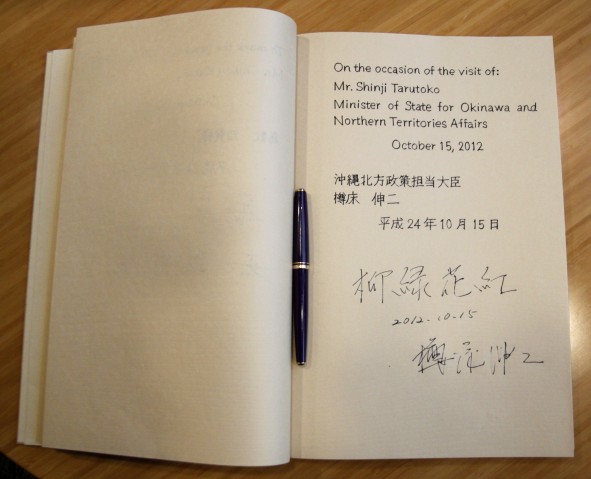 On the occasion of the visit of:
Mr. Shinji Tarutoko
Minister of State for Okinawa and
Northern Territories Affairs
October 15, 2012
沖縄北方政策担当大臣
樽床 伸二
平成24年10月15日
柳緑花紅
2012-10-15
樽床伸二